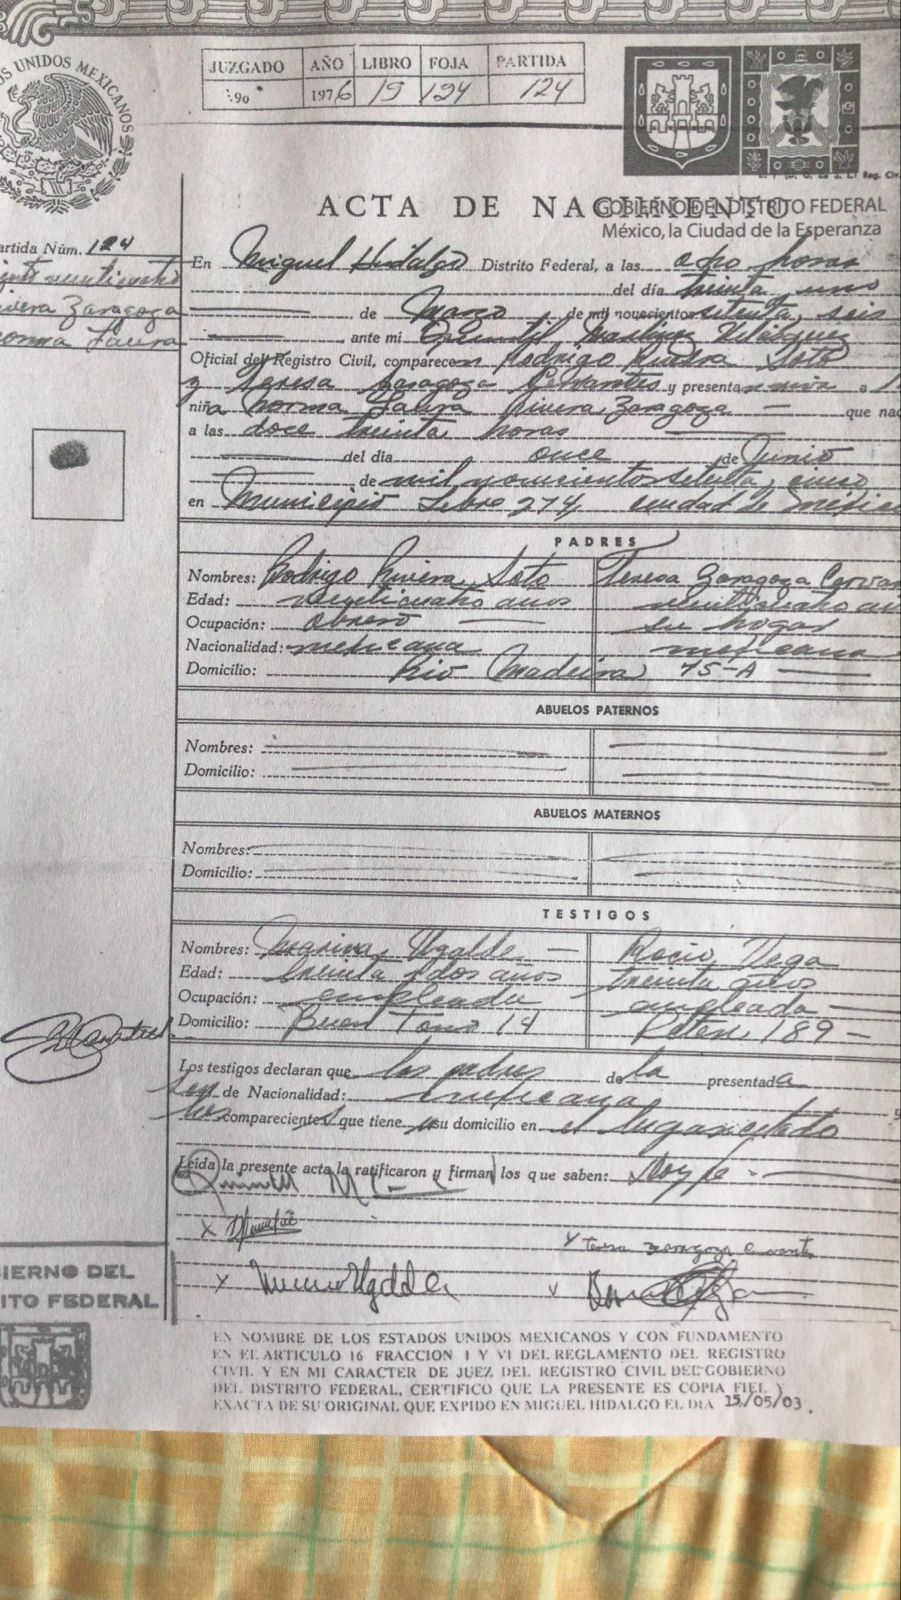 OS UNIDOS MEXICANOS
JUZGADO AÑO LIBRO FOJA PARTIDA
1976 19 124 124
Reg. Civ
ACTA DE NACIMIENTO
GOBIERNO DEL DISTRITO FEDERAL
México, la Ciudad de la Esperanza
artida Núm. 124
En Miguel Hidalgo Distrito Federal, a las ocho horas
del día treinta uno
ivera Zaragoza
de Marzo de mil novecientos setenta, seis
orma Laura
ante mi Martinez Velázquez
Oficial del Registro Civil, comparecen Rodrigo Rivera Soto
y Teresa Zaragoza Cervantes y presentan viva a l
niña Norma Laura Rivera Zaragoza que nac
a las doce treinta horas
del día once de Junio
de mil novecientos setenta, cinco
en Municipio Libre 274 ciudad de México
PADRES
Nombres: Rodrigo Rivera Soto Teresa Zaragoza Cervan
Edad: veinticuatro años veinticuatro añ
Ocupación: obrero su hogar
Nacionalidad: mexicana mexicana
Domicilio: Rio Madeira 75-A
ABUELOS PATERNOS
Nombres:
Domicilio:
ABUELOS MATERNOS
Nombres:
Domicilio:
TESTIGOS
Nombres: Marina Ugalde Rocio Vega
Edad: treinta y dos años treinta años
Ocupación: empleada empleada
Domicilio: Buen Tono 14 189
Los testigos declaran que los padres de la presentada
son de Nacionalidad: mexicana y
los comparecientes que tienen su domicilio en el lugar citado
Leida la presente acta la ratificaron y firman los que saben: Doy fe
X
Y teresa zaragoza cervantes
X
IERNO DEL
ITO FEDERAL
EN NOMBRE DE LOS ESTADOS UNIDOS MEXICANOS Y CON FUNDAMENTO
EN EL ARTICULO 16 FRACCION I Y VI DEL REGLAMENTO DEL REGISTRO
CIVIL Y EN MI CARACTER DE JUEZ DEL REGISTRO CIVIL DEL GOBIERNO
DEL DISTRITO FEDERAL, CERTIFICO QUE LA PRESENTE ES COPIA FIEL Y
EXACTA DE SU ORIGINAL QUE EXPIDO EN MIGUEL HIDALGO EL DIA 15/05/03.